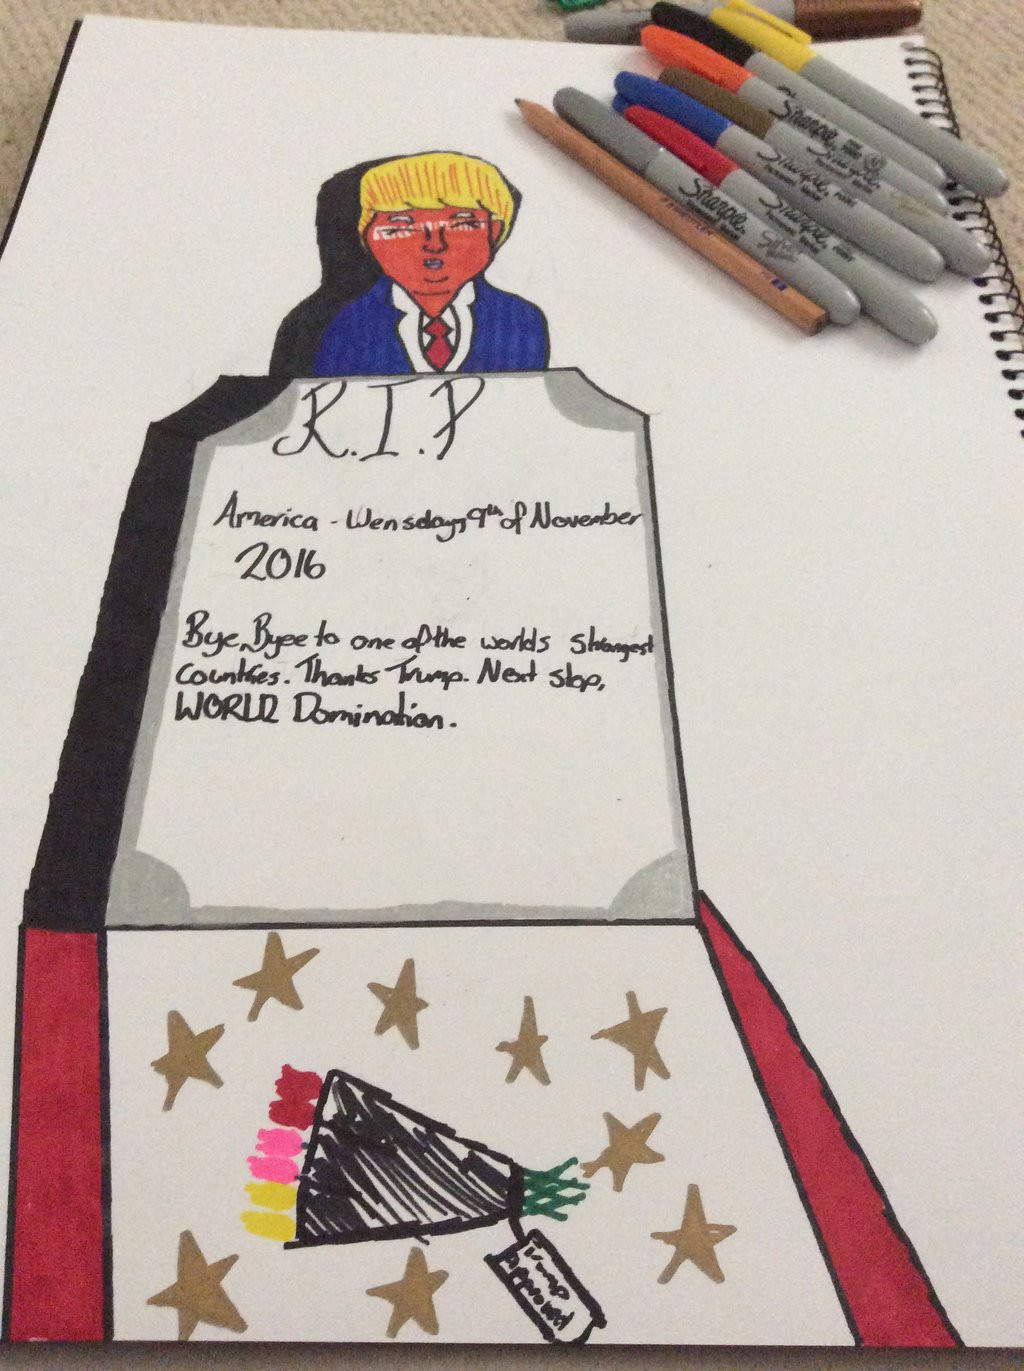 Sharpie
Sharpie
Sharpie
Sharpie
R.I.P
America - Wensday, 9th of November
2016
Bye, Byee to one of the worlds strongest
countries. Thanks Trump. Next stop,
WORLD Domination.
Trump
Approved